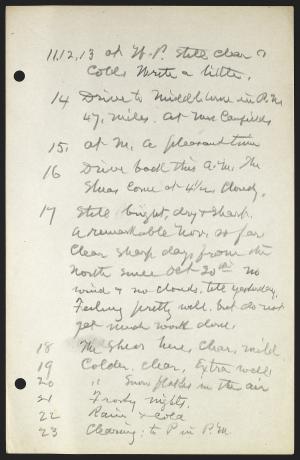 11, 12, 13 at W.P. Still clear &
cold. Write a little.
14 Drive to Middleburne in P.M.
47 miles. at Mrs Canfields
15, at M. a pleasant time
16 Drive back this A.M. The
Sheas come at 4½. Cloudy.
17 Still bright, dry & sharp.
A remarkable Nov. so far
Clear sharp days from the
North since Oct 20th no
wind & no clouds, till yesterday.
Feeling pretty well, but do not
get much work done.
18 The Sheas here, clear, mild.
19 Colder, clear, Extra well
20 " Snow flakes in the air
21 Frosty nights.
22 Rain & cold
23 Clearing; to P in P.M.